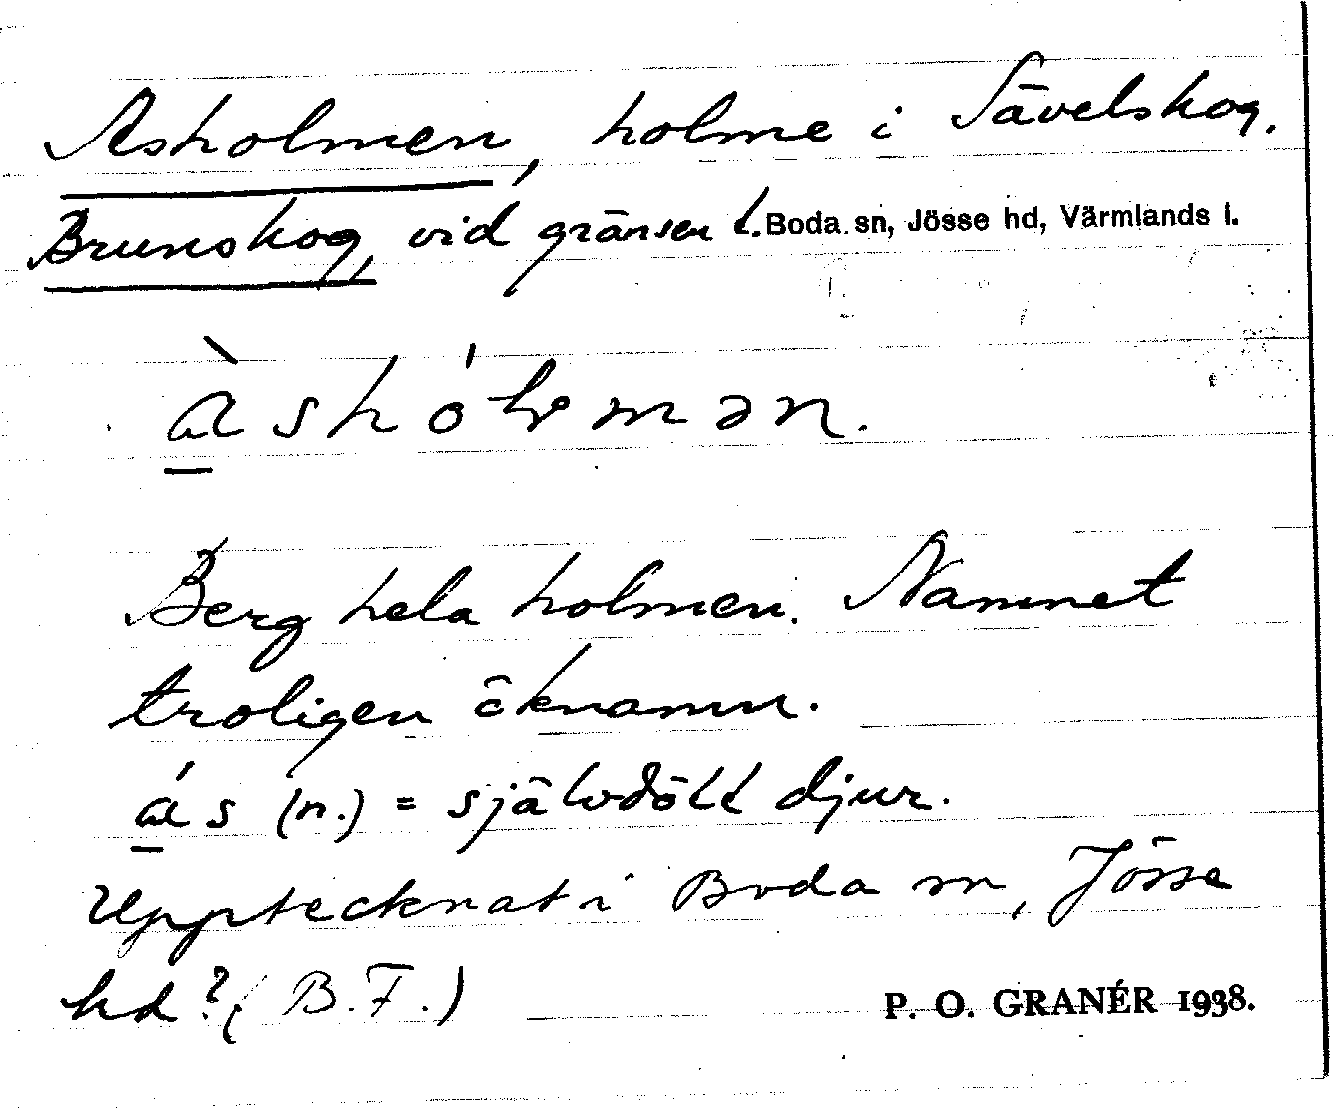 Asholmen, holme i Sävelskog.
Brunskog, vid gränsen t. Boda sn, Jösse hd, Värmlands l.
àshólmən.
Berg hela holmen. Namnet
troligen öknamn.
ás (n.) = självdött djur.
Upptecknat i Boda sn, Jösse
hd? (B.F.)
P. O. GRANÉR 1938.